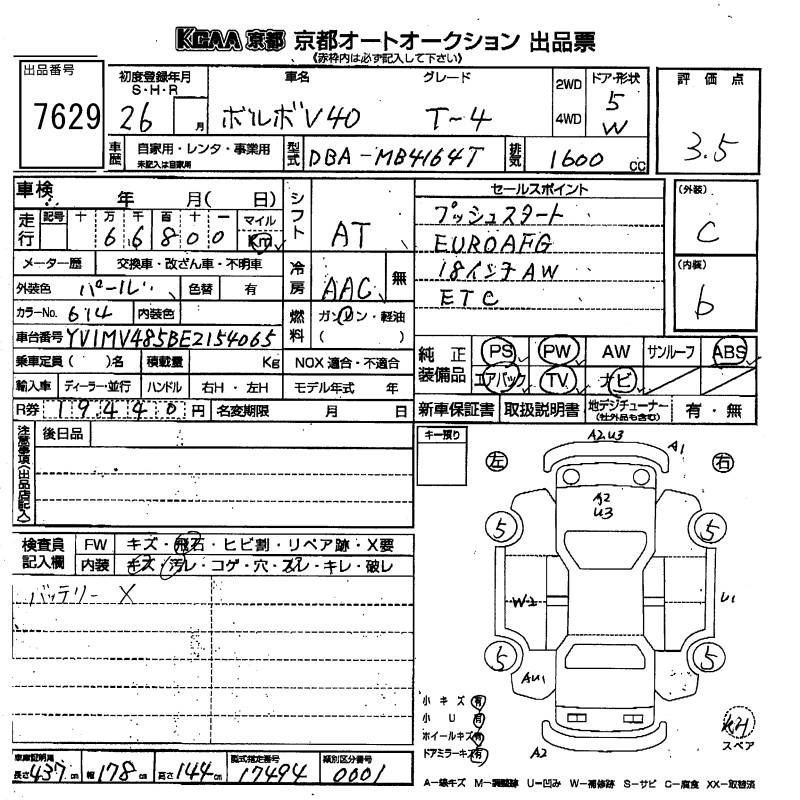 KCAA 京都 京都オートオークション 出品票
(赤枠内は必ず記入して下さい)
出品番号
7629
初度登録年月 車名 グレード
S・H・R
26 月 ボルボV40 T-4
2WD
4WD
ドア・形状
5
W
車歴 自家用・レンタ・事業用
未記入は自家用
型式 DBA-MB4164T
排気 1600 CC
評価点
3.5
車検 年 月( 日)
走行 記号 十 万 千 百 十 一 マイル
6 6 8 0 0 Km
シフト AT
メーター歴 交換車・改ざん車・不明車
冷房 AAC 無
外装色 パール 色替 有
カラーNo. 614 内装色
燃料 ガソリン・軽油
( )
車台番号 YV1MV485BE2154065
乗車定員( )名 積載量 Kg NOX 適合・不適合
輸入車 ディーラー・並行 ハンドル 右H・左H モデル年式 年
R券 19440円 名変期限 月 日
セールスポイント
プッシュスタート
EUROAFG
18インチAW
ETC
(外装)
C
(内装)
b
純正装備品 PS PW AW サンルーフ ABS
エアバック TV ナビ
新車保証書 取扱説明書 地デジチューナー 有・無
(社外品も含む)
注意事項(出品店記入)
後日品
検査員記入欄
FW キズ・飛石・ヒビ割・リペア跡・X要
内装 キズ・汚レ・コゲ・穴・ズレ・キレ・破レ
バッテリー X
キー預り
左 右
A2.U3 A1
A2
U3
5 5
W2 U1
5 5
AU1
A2
小キズ 有
小U 有
ホイールキズ 有
ドアミラーキズ 有
スペア
A-線キズ M-調整跡 U-凹み W-補修跡 S-サビ C-腐食 XX-取替済
車庫証明用
長さ 437cm 幅 178cm 高さ 144cm
型式指定番号 17494
類別区分番号 0001